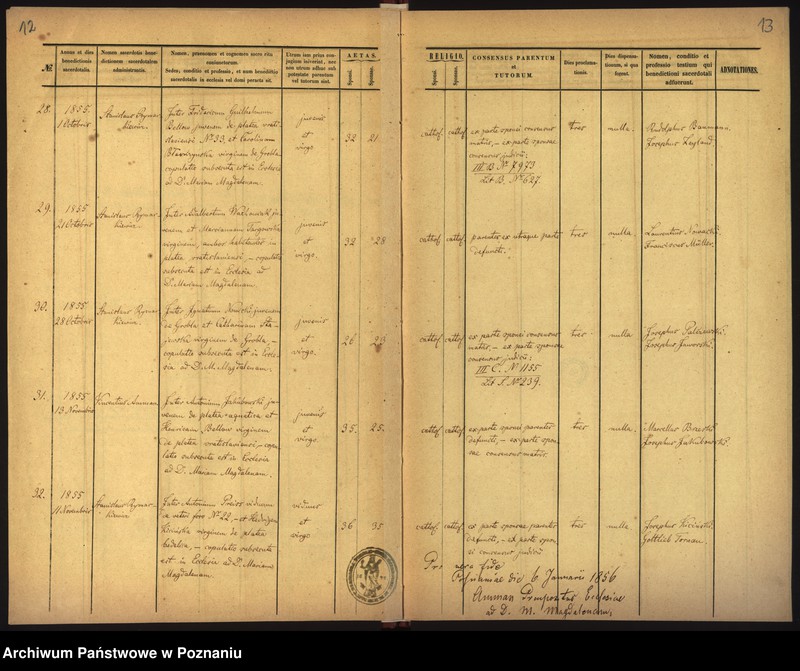 12
13
№
Annus et dies benedictionis sacerdotalis.
Nomen sacerdotis benedictionem sacerdotalem administrantis.
Nomen, praenomen et cognomen novo ritu coniunctorum.
Sedes, conditio et professio, et num benedictio sacerdotalis in ecclesia vel domi peracta sit.
Utrum iam prius conjugium inierint, nec non utrum adhuc sub potestate parentum vel tutorum sint.
AETAS.
Sponsi.
Sponsae.
RELIGIO.
Sponsi.
Sponsae.
CONSENSUS PARENTUM et TUTORUM.
Dies proclamationis.
Dies dispensationum, si quae fuerunt.
Nomen, conditio et professio testium qui benedictioni sacerdotali adfuerunt.
ADNOTATIONES.
28.
1855.
1 Octobris
Stanislaus
Inter
Guilhelmum
Bellow juvenem de platea vrati-
slaviensi № 33, et Carolinam
virginem de Grobla
copulatio subsecuta est in Ecclesia
ad D. Mariam Magdalenam.
juvenis
et
virgo
32
21
cathol. cathol.
ex parte sponsi consensus
matris, – ex parte sponsae
consensus judicii;
III B. № 7973
Lit B. № 627.
tres
nulla.
Rudolphus
Josephus
29.
1855
21 Octobris
Stanislaus
Inter Adalbertum
ju-
venem et Mariannam
virginem, ambos habitantes in
platea vratislaviensi – copulatio
subsecuta est in Ecclesia ad
D. Mariam Magdalenam.
juvenis
et
virgo.
32
28
cathol. cathol.
parentes ex utraque parte
defuncti.
tres
nulla
Laurentius Nowacki
Franciscus Müller.
30.
1855
28 Octobris
Stanislaus
Inter Ignatium
juvenem
de Grobla et Catharinam
virginem de Grobla, –
copulatio subsecuta est in Eccle-
sia ad D. M. Magdalenam.
juvenis
et
virgo.
26
29
cathol. cathol.
ex parte sponsi consensus
matris, – ex parte sponsae
consensus judicii;
III C. № 1155
Lit S. № 239.
tres
nulla
Josephus
Josephus Jaworski.
31.
1855
13 Novembris
Vincentius Amman
Inter Antonium Jakubowski ju-
venem de platea aquatica et
Bellow virginem
de platea vratislaviensi – copu-
latio subsecuta est in Ecclesia
ad D. Mariam Magdalenam.
juvenis
et
virgo.
35.
25.
cathol. cathol.
ex parte sponsi parentes
defuncti – ex parte spon-
sae consensus matris.
tres
nulla.
Marcellus
Josephus Jakubowski
32.
1855
11 Novembris
Stanislaus
Inter Antonium Preiss viduum
in vetere foro № 22, – et Hedvigem
virginem de platea
– copulatio subsecuta
est in Ecclesia ad D. Mariam
Magdalenam.
viduus
et
virgo
36
35
cathol. cathol.
ex parte sponsae parentes
defuncti, – ex parte spon-
si consensus judicii
tres
nulla
Josephus
Gottlieb
Pro vera fide
Posnaniae die 6 Januarii 1856
Amman Praepositus Ecclesiae
ad D. M. Magdalenam.
Archiwum Państwowe w Poznaniu